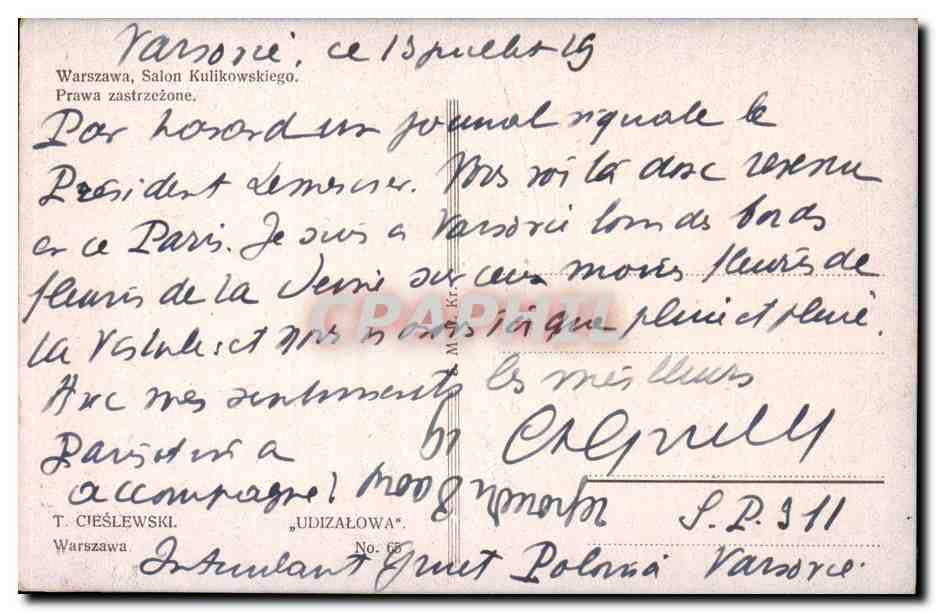 Varsovie, ce 13 juillet 19
Warszawa, Salon Kulikowskiego.
Prawa zastrzeżone.
Par hasard un journal signale le
Président Lemercier. Vous voilà donc revenu
en ce Paris. Je suis à Varsovie loin des bords
fleuris de la Seine sur ceux moins fleuris de
la Vistule et nous n'avons ici que pluie et pluie.
Avec mes sentiments les meilleurs
a
accompagné
S.P. 311
T. CIEŚLEWSKI.
Warszawa
„UDIZAŁOWA".
No. 65
Intendant Polonia Varsovie
CPAPHIL